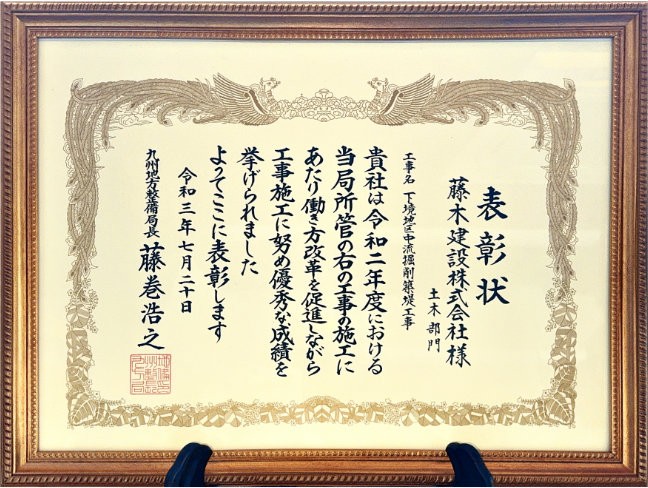 表彰状
土木部門
藤木建設株式会社様
工事名 下境地区中流掘削築堤工事
貴社は令和二年度における
当局所管の右の工事の施工に
あたり働き方改革を促進しながら
工事施工に努め優秀な成績を
挙げられました
よってここに表彰します
令和三年七月二十日
九州地方整備局長 藤巻浩之